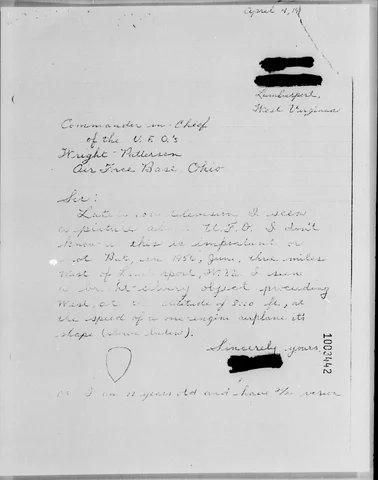 April 4, 19
Lumberport,
West Virginia
Commander-in-Chief
of the U.F.O.'s
Wright-Patterson
Air Force Base Ohio
Sir:
on television I seen
a picture about U.F.O. I don't
know if this is important or
not But, in 1956, June, three miles
West of Lumberport, W.Va. I seen
a bright silvery object proceeding
West, at the altitude of 800 ft., at
the speed of a one engine airplane its
shape (shown below).
Sincerely yours,
1003442
I am 11 years old and have vision